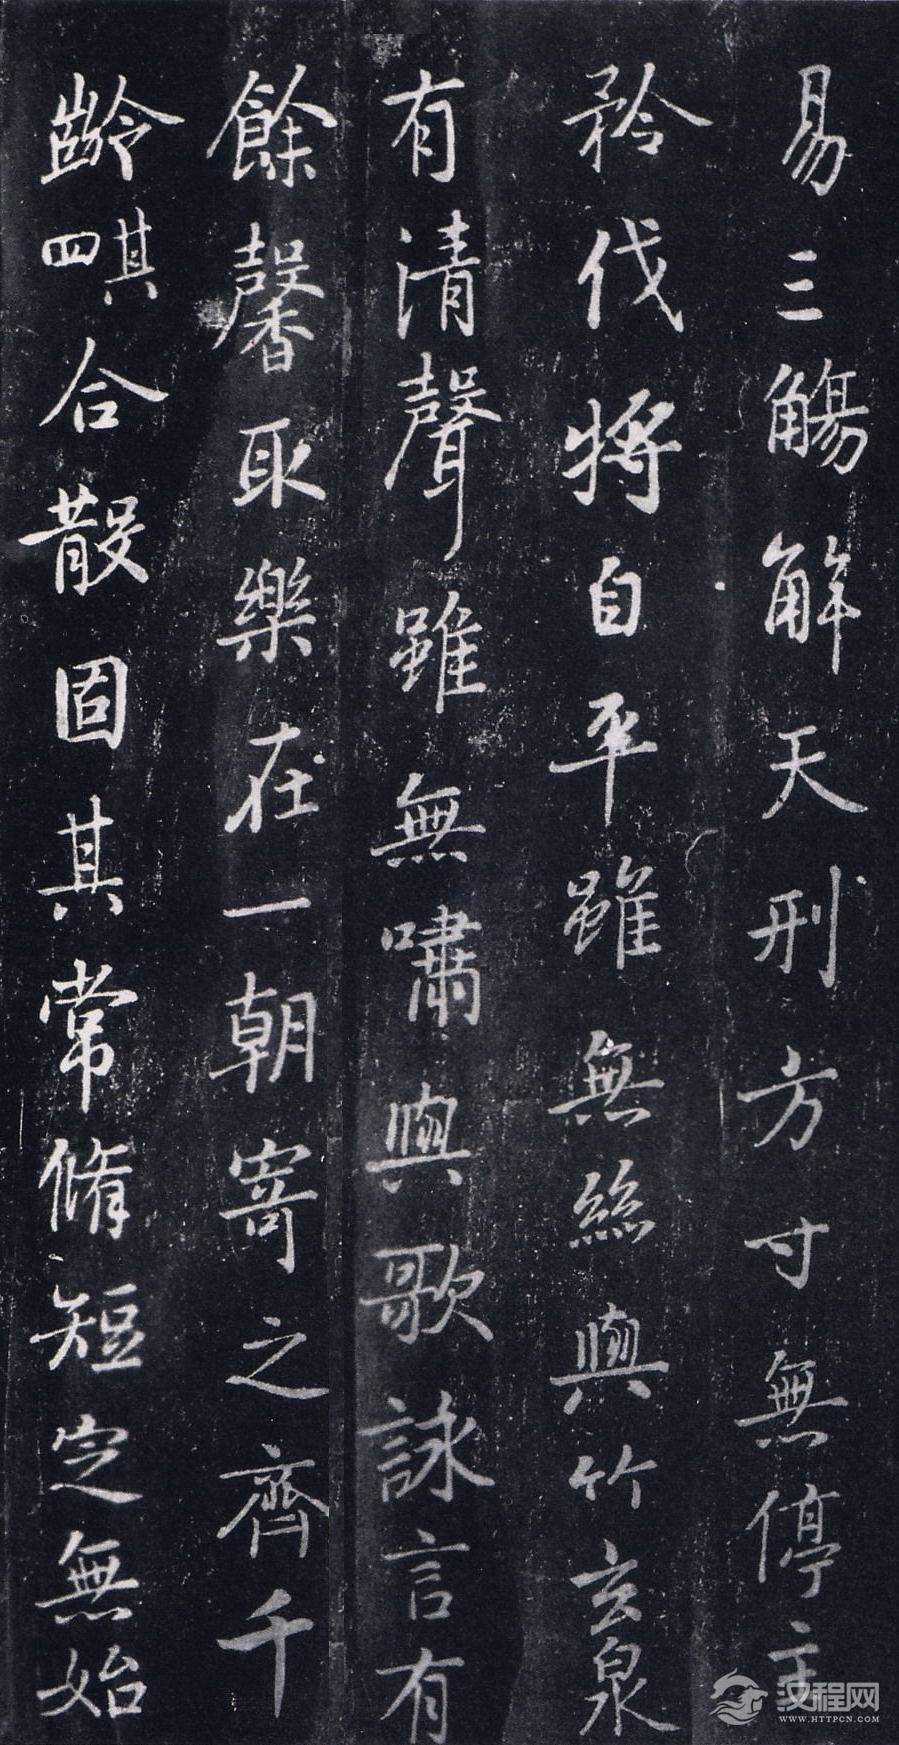 易三觴解天刑方寸無停主
矜伐將自平雖無絲與竹玄泉
有清聲雖無嘯與歌詠言有
餘馨取樂在一朝寄之齊千
齡四 其合散固其常脩短定無始
汉程网
WWW.HTTPCN.COM